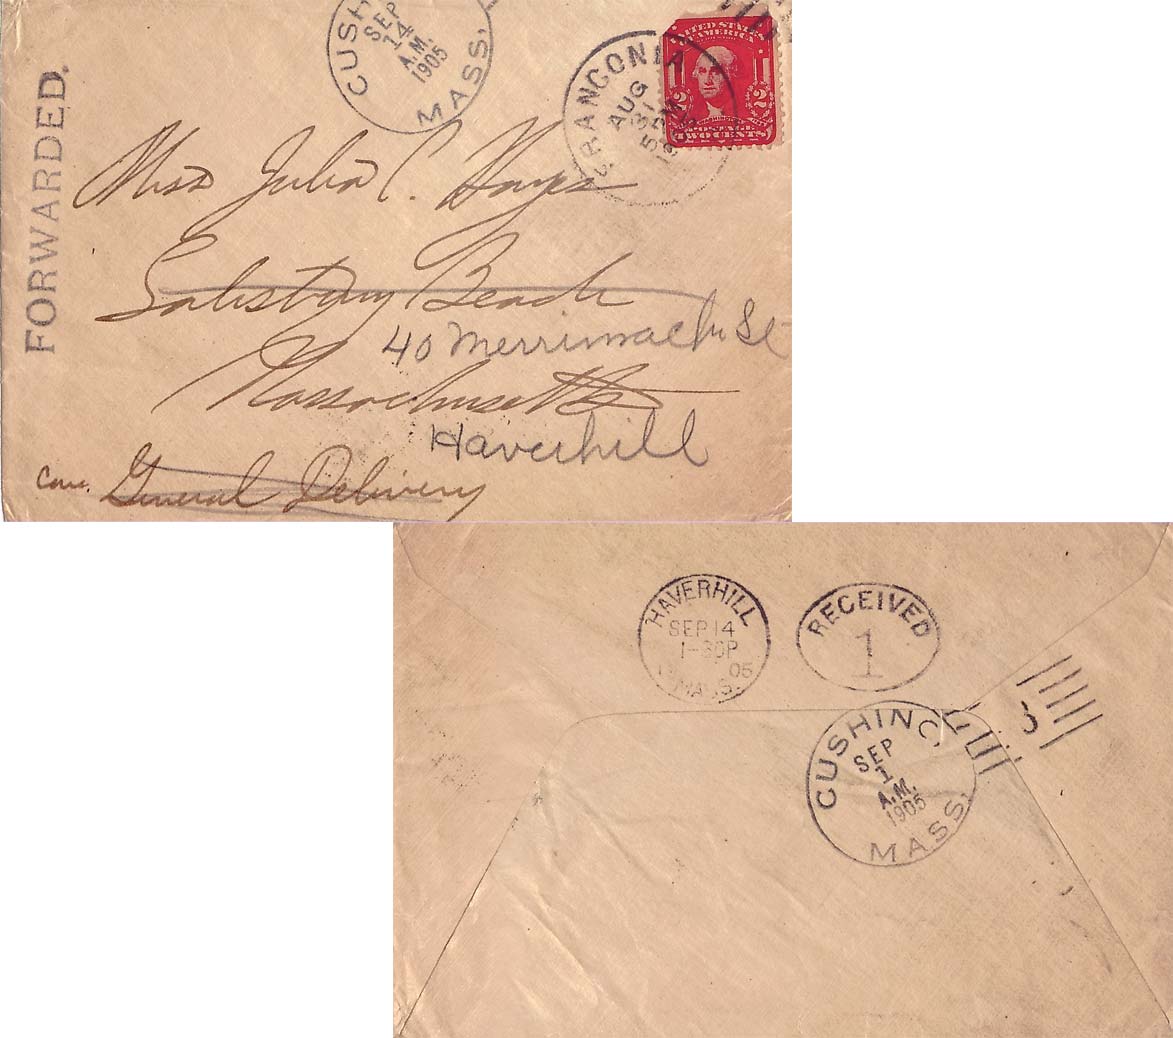 FORWARDED.
CUSH
SEP
14
A.M.
1905
MASS.
FRANCONIA
AUG
31
UNITED STATES
OF AMERICA
2 2
WASHINGTON
POSTAGE
TWO CENTS
Miss Julia C. Hayes
Salisbury Beach
40 Merrimack St
Massachusetts
Haverhill
Care General Delivery
HAVERHILL
SEP 14
1-30P
05
MASS.
RECEIVED
1
CUSHING
SEP
1
A.M.
1905
MASS.
3